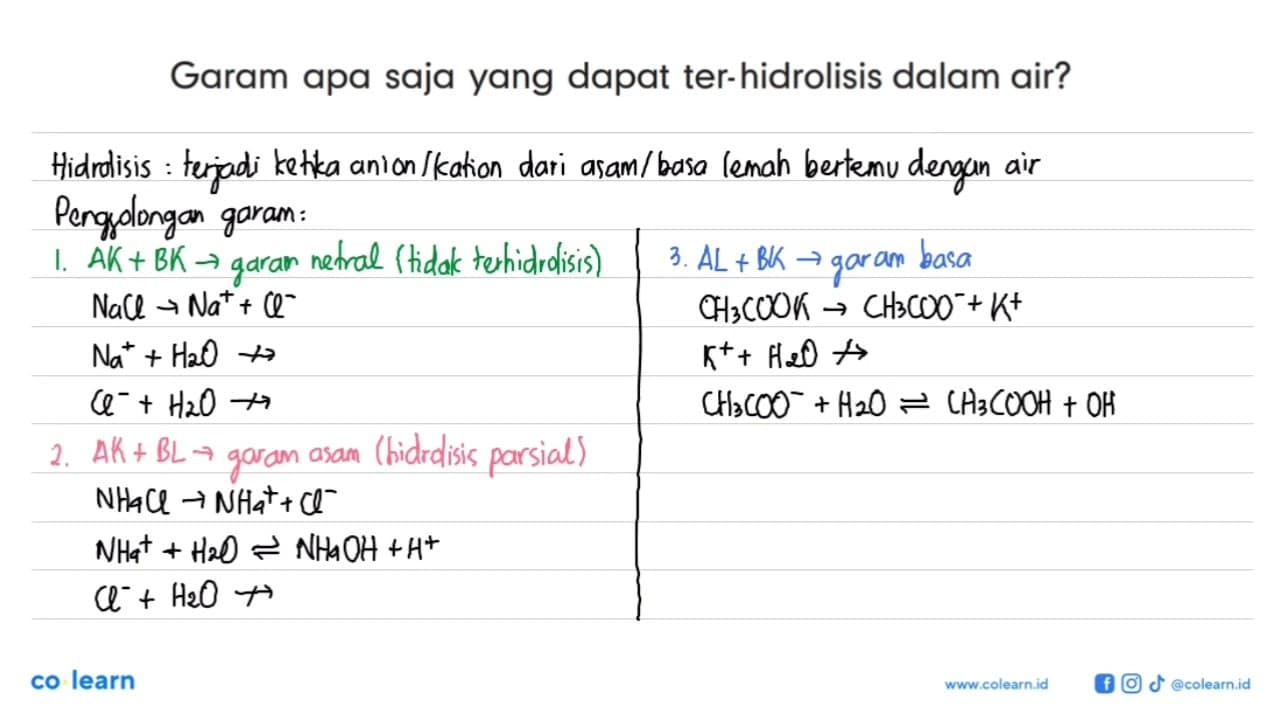 Garam apa saja yang dapat ter-hidrolisis dalam air?
Hidrolisis : terjadi ketika anion/kation dari asam/basa lemah bertemu dengan air
Penggolongan garam:
1. AK + BK → garam netral (tidak terhidrolisis)
NaCl → Na⁺ + Cl⁻
Na⁺ + H₂O ↛
Cl⁻ + H₂O ↛
2. AK + BL → garam asam (hidrolisis parsial)
NH₄Cl → NH₄⁺ + Cl⁻
NH₄⁺ + H₂O ⇌ NH₄OH + H⁺
Cl⁻ + H₂O ↛
3. AL + BK → garam basa
CH₃COOK → CH₃COO⁻ + K⁺
K⁺ + H₂O ↛
CH₃COO⁻ + H₂O ⇌ CH₃COOH + OH
co learn
www.colearn.id
@colearn.id